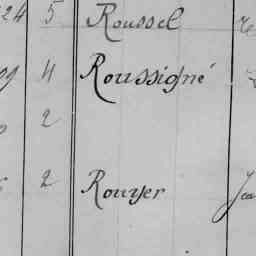 24 5 Roussel
09 4 Roussigné
2
2 Rouyer Jea